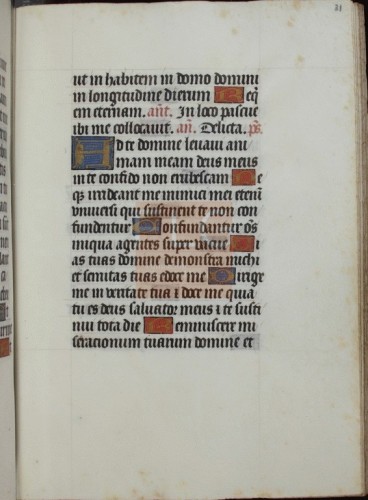 ut in habitem in domo domini
in longitudine dierum Req̄
em eternam. an̄t. In loco pascue
ibi me collocauit. an̄. Delicta. p̄s
Ad te domine leuaui ani
mam meam deus meus
in te confido non erubescam Ne
q̨ irrideant me inimici mei eteni
vniuersi qui sustinent te non con
fundentur Confundantur oēs
iniqua agentes superuacue Vi
as tuas domine demonstra michi
et semitas tuas edoce me Dirige
me in veritate tua ⁊ doce me quia
tu es deus saluator meus ⁊ te susti
nui tota die Reminiscere mi
seracionum tuarum domine et